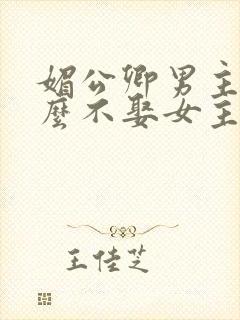 媚公卿男主
麼不娶女主
王佳芝